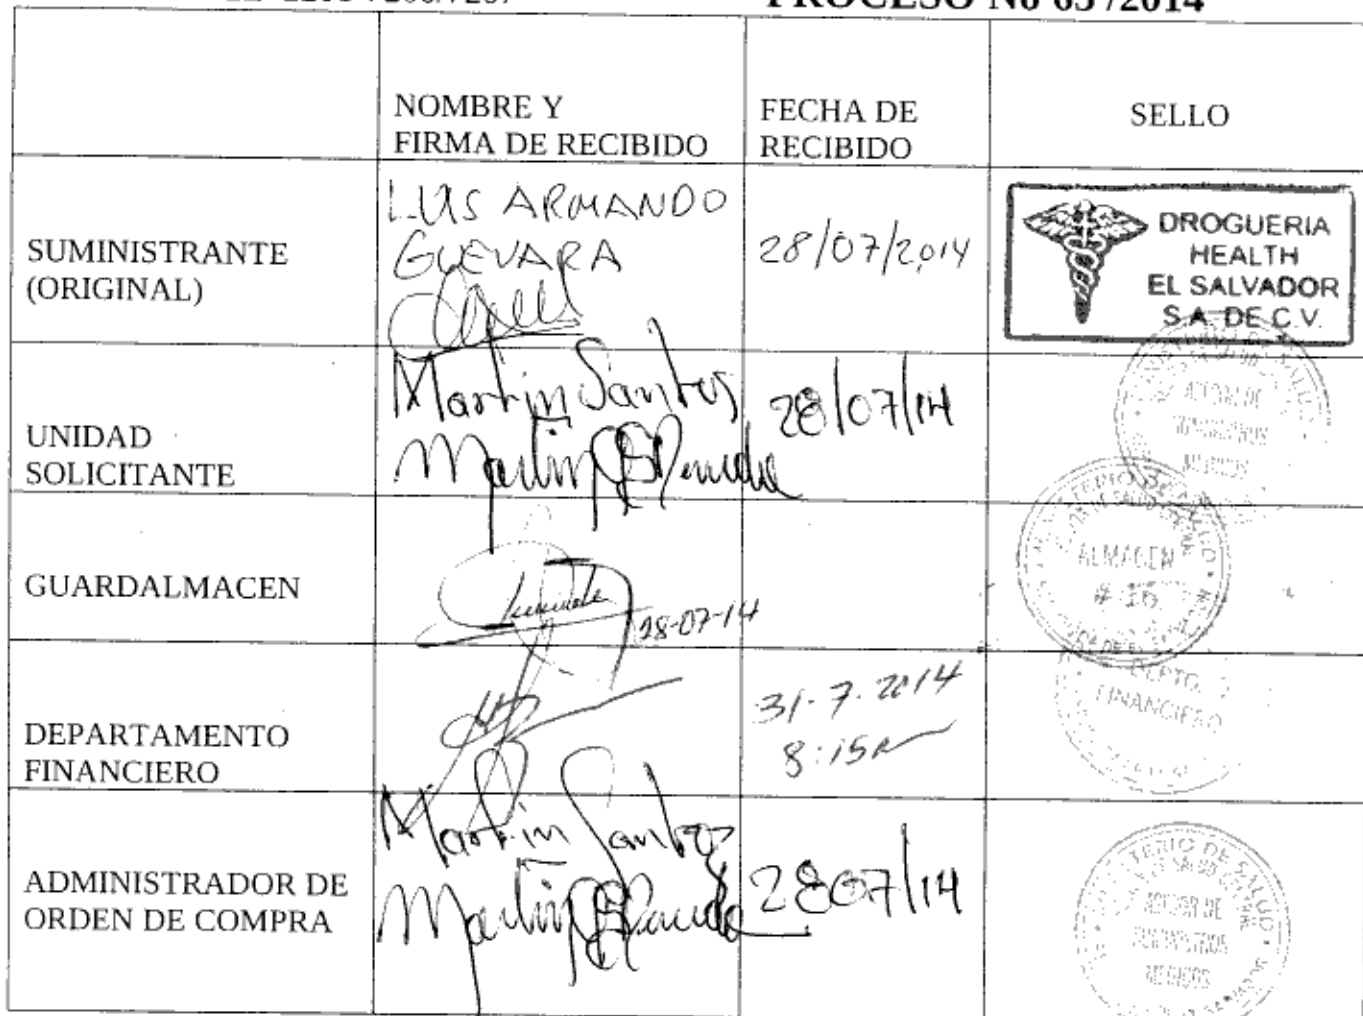 PROCESO No 65 /2014
NOMBRE Y
FIRMA DE RECIBIDO
FECHA DE
RECIBIDO
SELLO
SUMINISTRANTE
(ORIGINAL)
LUIS ARMANDO
GUEVARA
28/07/2014
DROGUERIA
HEALTH
EL SALVADOR
S.A. DE C.V.
UNIDAD
SOLICITANTE
Martin Santos
Martin
28/07/14
GUARDALMACEN
28-07-14
ALMACEN
DEPARTAMENTO
FINANCIERO
31-7-2014
8:15
DEPTO.
FINANCIERO
ADMINISTRADOR DE
ORDEN DE COMPRA
Martin Santos
Martin
2807/14
MINISTERIO DE SALUD
MEDICOS